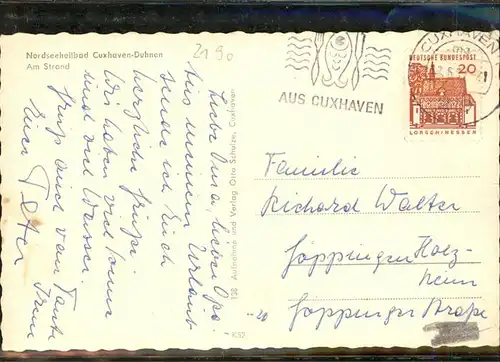 Nordseeheilbad Cuxhaven-Duhnen
Am Strand
2190
AUS CUXHAVEN
CUXHAVEN
DEUTSCHE BUNDESPOST
20
LORSCH/HESSEN
Liebe Oma, lieber Opa!
Aus meinem Urlaub
sende ich Euch
herzliche Grüße.
Wir haben viel Sonne
und viel Wasser.
Grüße auch von Tante
Euer Peter
136 Aufnahme und Verlag Otto Schulze, Cuxhaven
Familie
Richard Walter
Göppingen Holz-
heim
Göppinger Straße
-20
K52